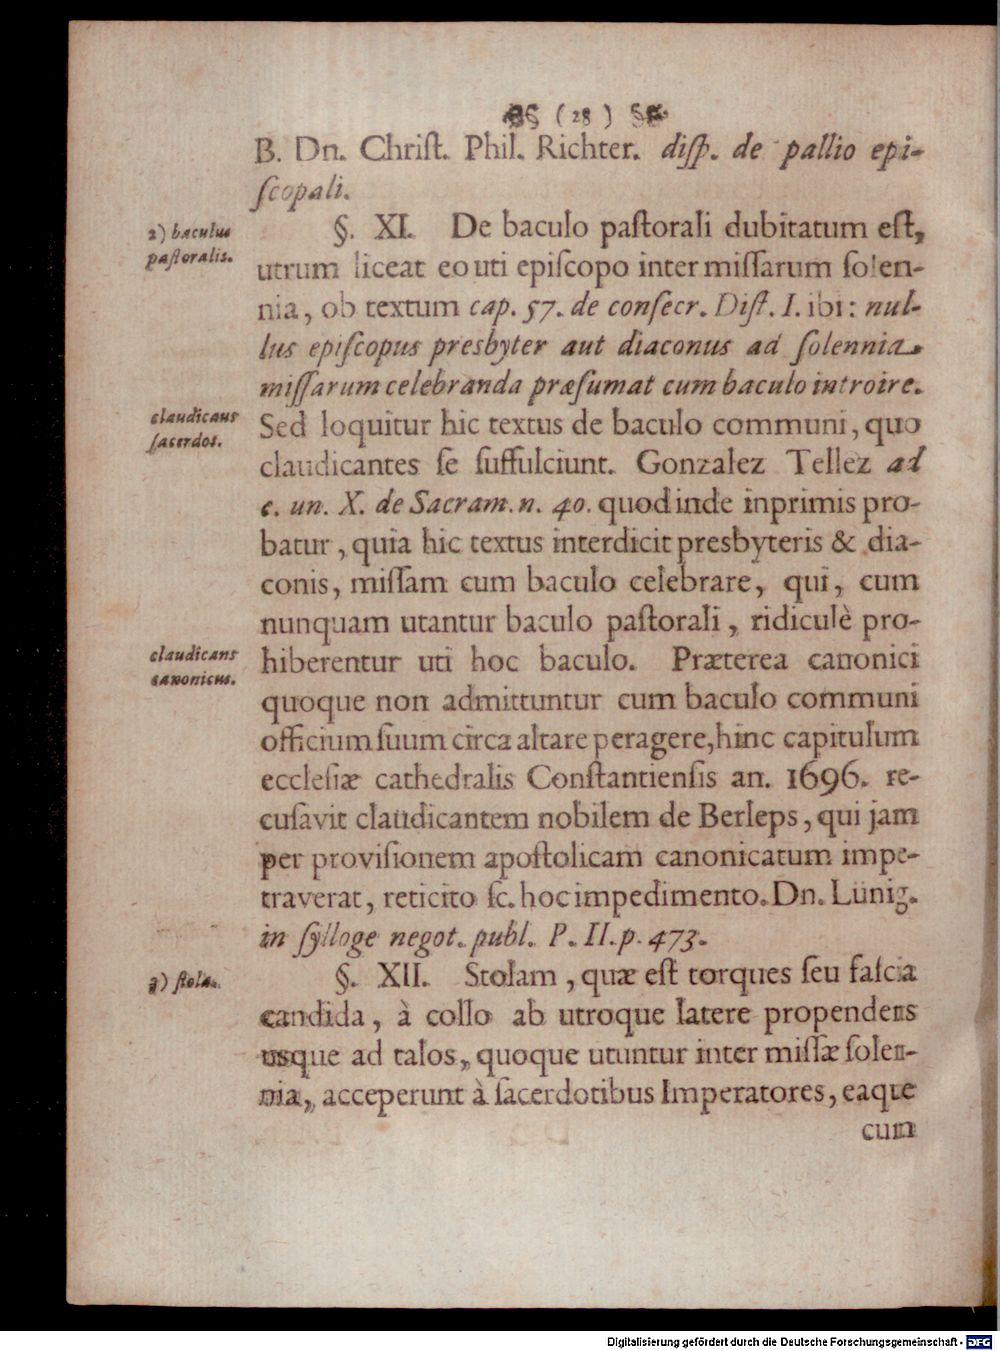 ( 28 )
B. Dn. Chriſt. Phil. Richter. diſp. de pallio epi-
ſcopali.
2) baculus
paſtoralis.
§. XI. De baculo paſtorali dubitatum eſt,
utrum liceat eo uti epiſcopo inter miſſarum ſolen-
nia, ob textum cap. 57. de conſecr. Diſt. I. ibi: nul-
lus epiſcopus presbyter aut diaconus ad ſolennia
miſſarum celebranda præſumat cum baculo introire.
claudicans
ſacerdos.
Sed loquitur hic textus de baculo communi, quo
claudicantes ſe ſuffulciunt. Gonzalez Tellez ad
c. un. X. de Sacram. n. 40. quod inde inprimis pro-
batur, quia hic textus interdicit presbyteris & dia-
conis, miſſam cum baculo celebrare, qui, cum
nunquam utantur baculo paſtorali, ridiculè pro-
claudicans
canonicus.
hiberentur uti hoc baculo. Præterea canonici
quoque non admittuntur cum baculo communi
officium ſuum circa altare peragere, hinc capitulum
eccleſiæ cathedralis Conſtantienſis an. 1696. re-
cuſavit claudicantem nobilem de Berleps, qui jam
per proviſionem apoſtolicam canonicatum impe-
traverat, reticito ſc. hoc impedimento. Dn. Lünig.
in ſylloge negot. publ. P. II. p. 473.
3) ſtola.
§. XII. Stolam, quæ eſt torques ſeu faſcia
candida, à collo ab utroque latere propendens
usque ad talos, quoque utuntur inter miſſæ ſolen-
nia, acceperunt à ſacerdotibus Imperatores, eaque
cum
Digitalisierung gefördert durch die Deutsche Forschungsgemeinschaft - DFG